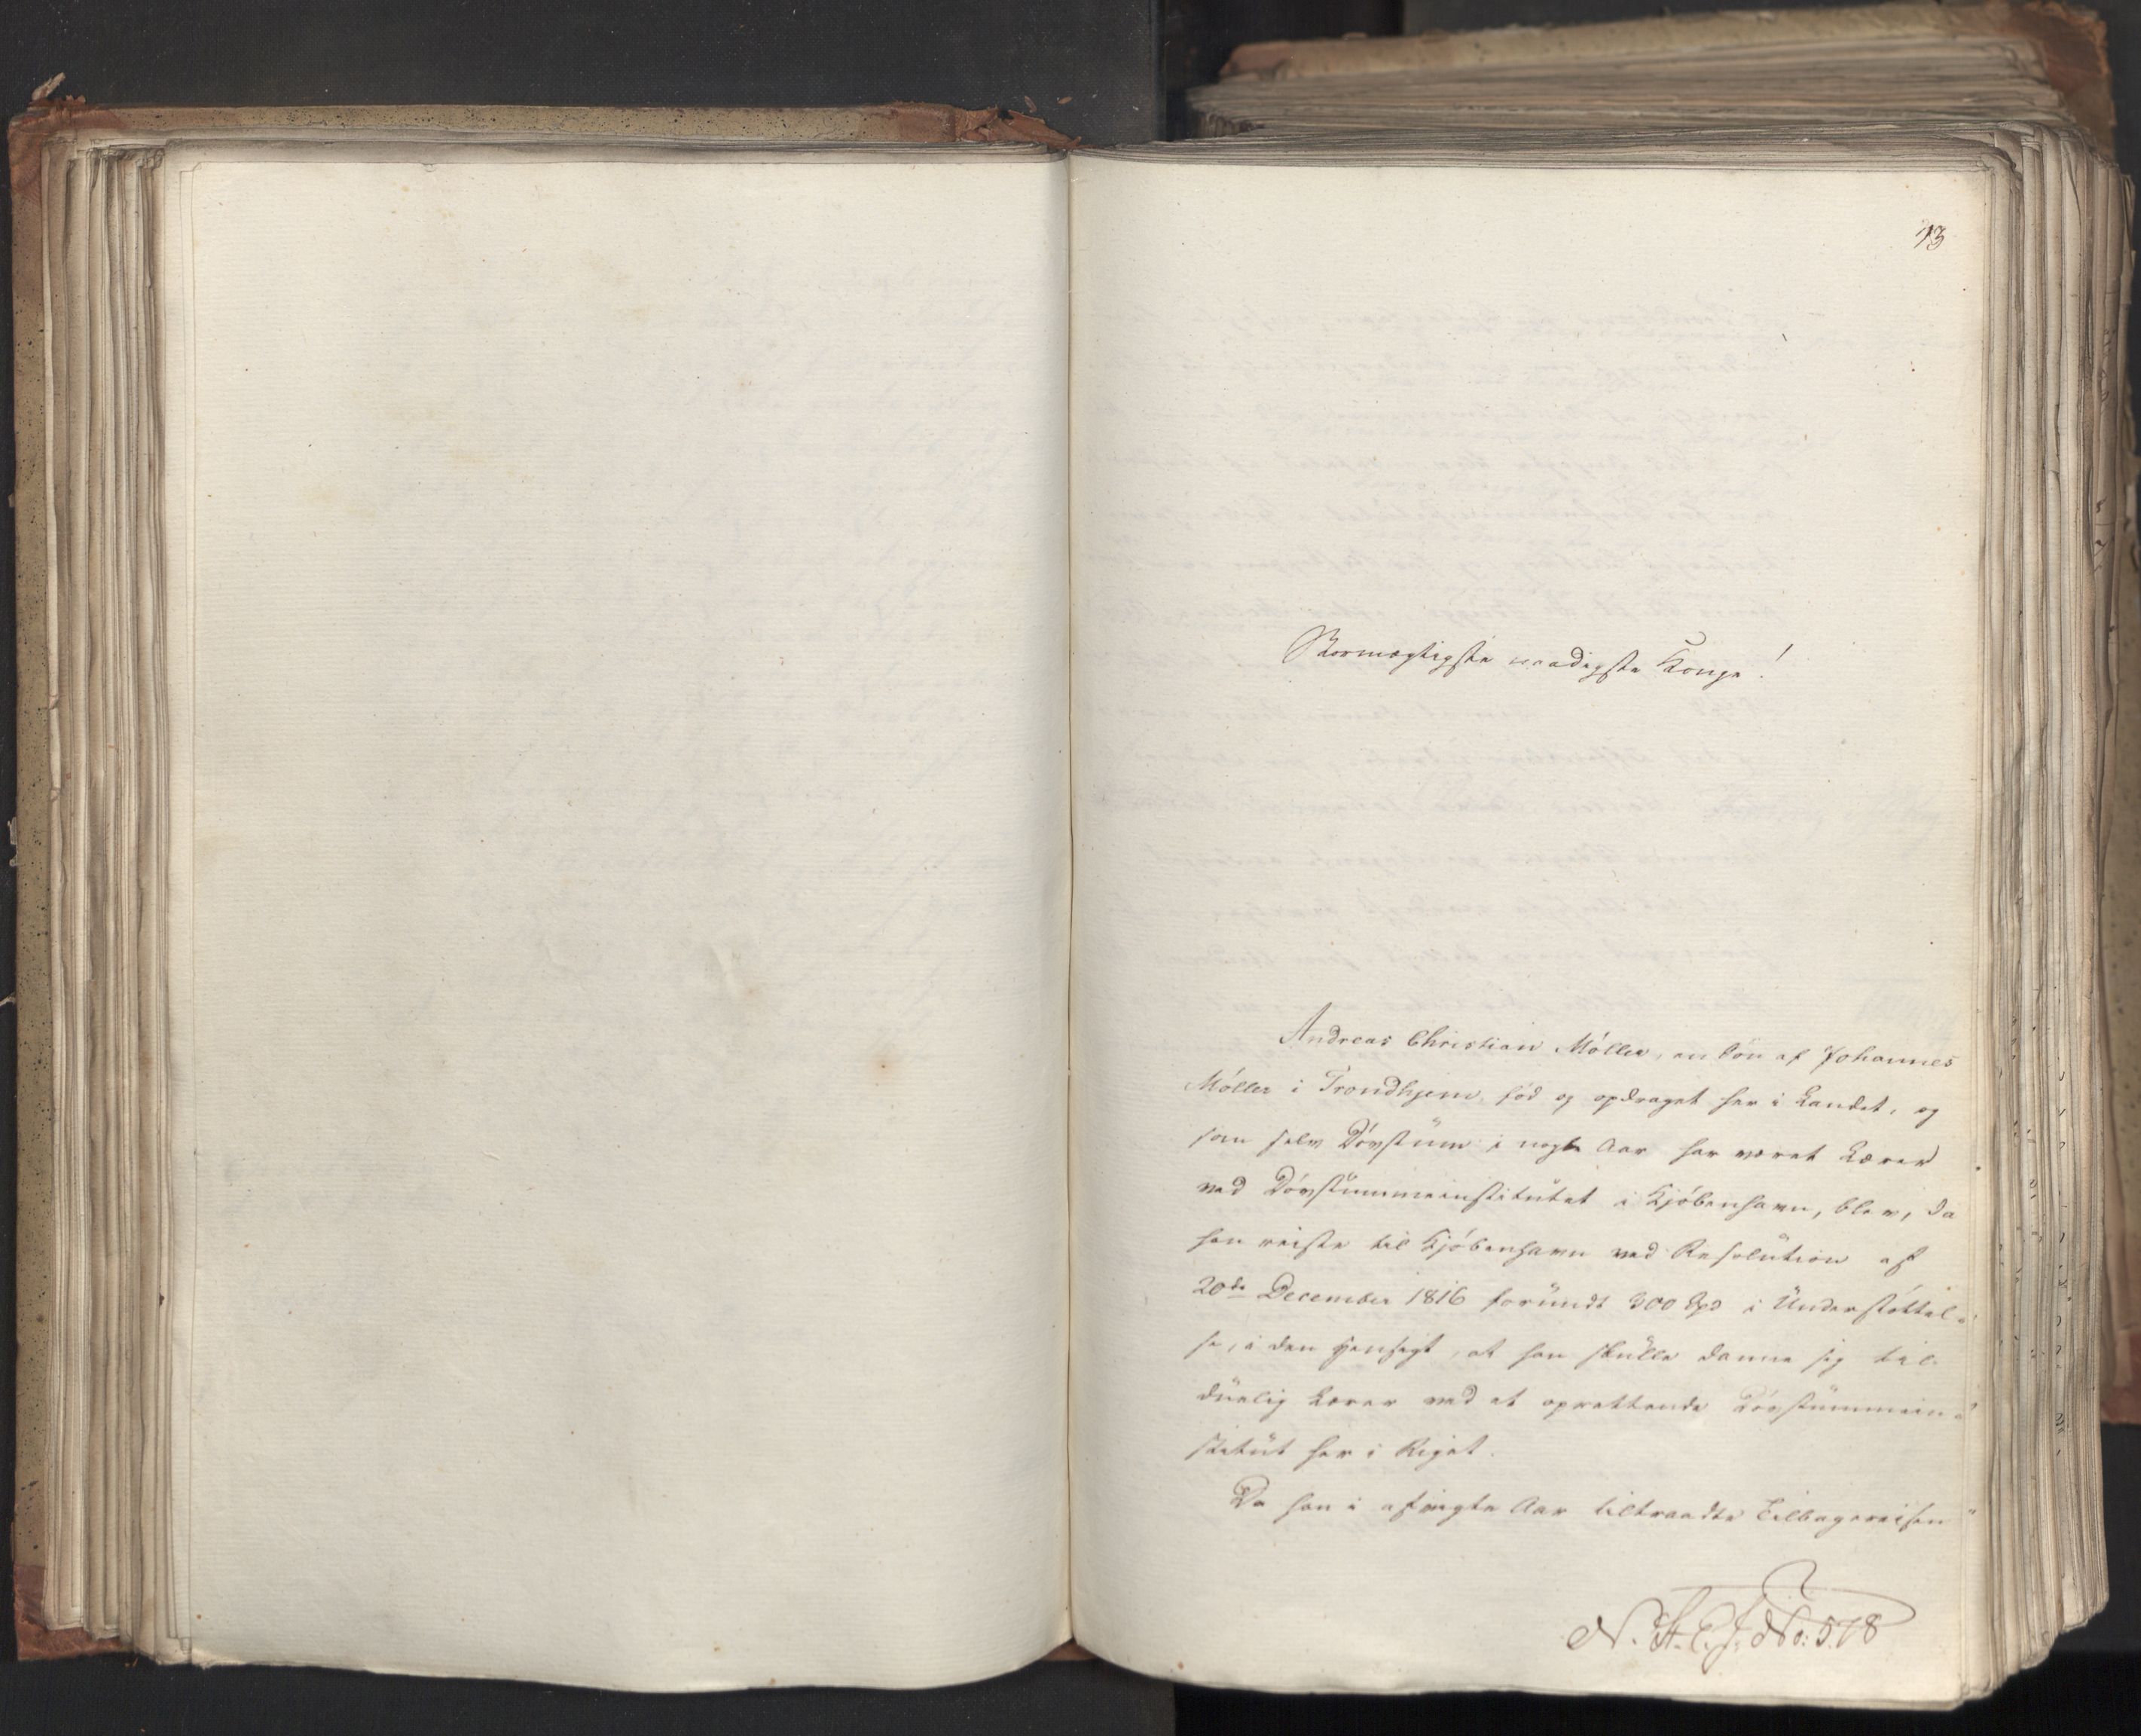 73
Stormægtigste naadigste Konge!
Andreas Christian Møller, en Søn af Johannes
Møller i Trondhjem, fød og opdraget her i Landet, og
som selv Døvstum i nogle Aar har været Lærer
ved Døvstummeinstitutet i Kjøbenhavn, blev, da
han reiste til Kjøbenhavn ved Resolution af
20de December 1816 forundt 300 Spd i Understøttel-
se, i den Hensigt, at han skulle danne sig til
duelig Lærer ved et oprettende Døvstummein-
stitut her i Riget.
Da han i afvigte Aar tiltraadte Tilbagereisen
N. St. E. J. No: 578